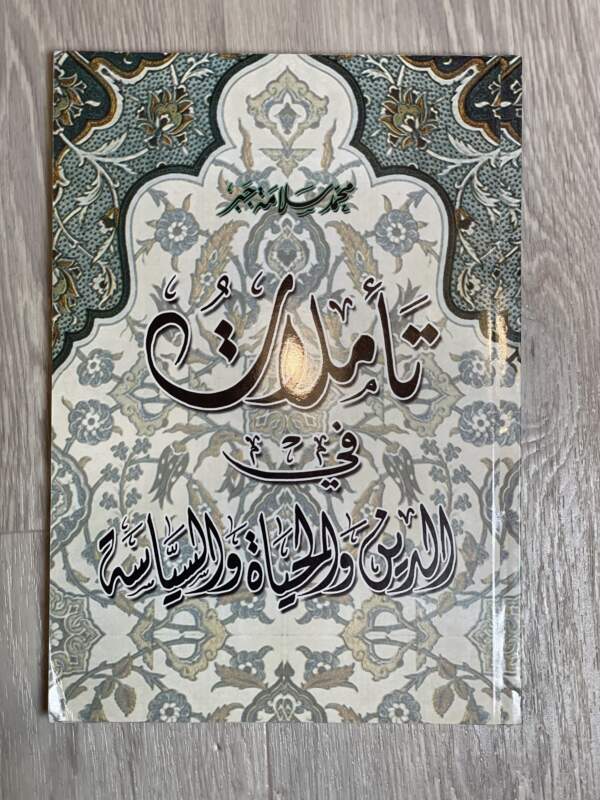 محمد سلامة جبر
تأملاتٌ
في
الدين والحياة والسياسة